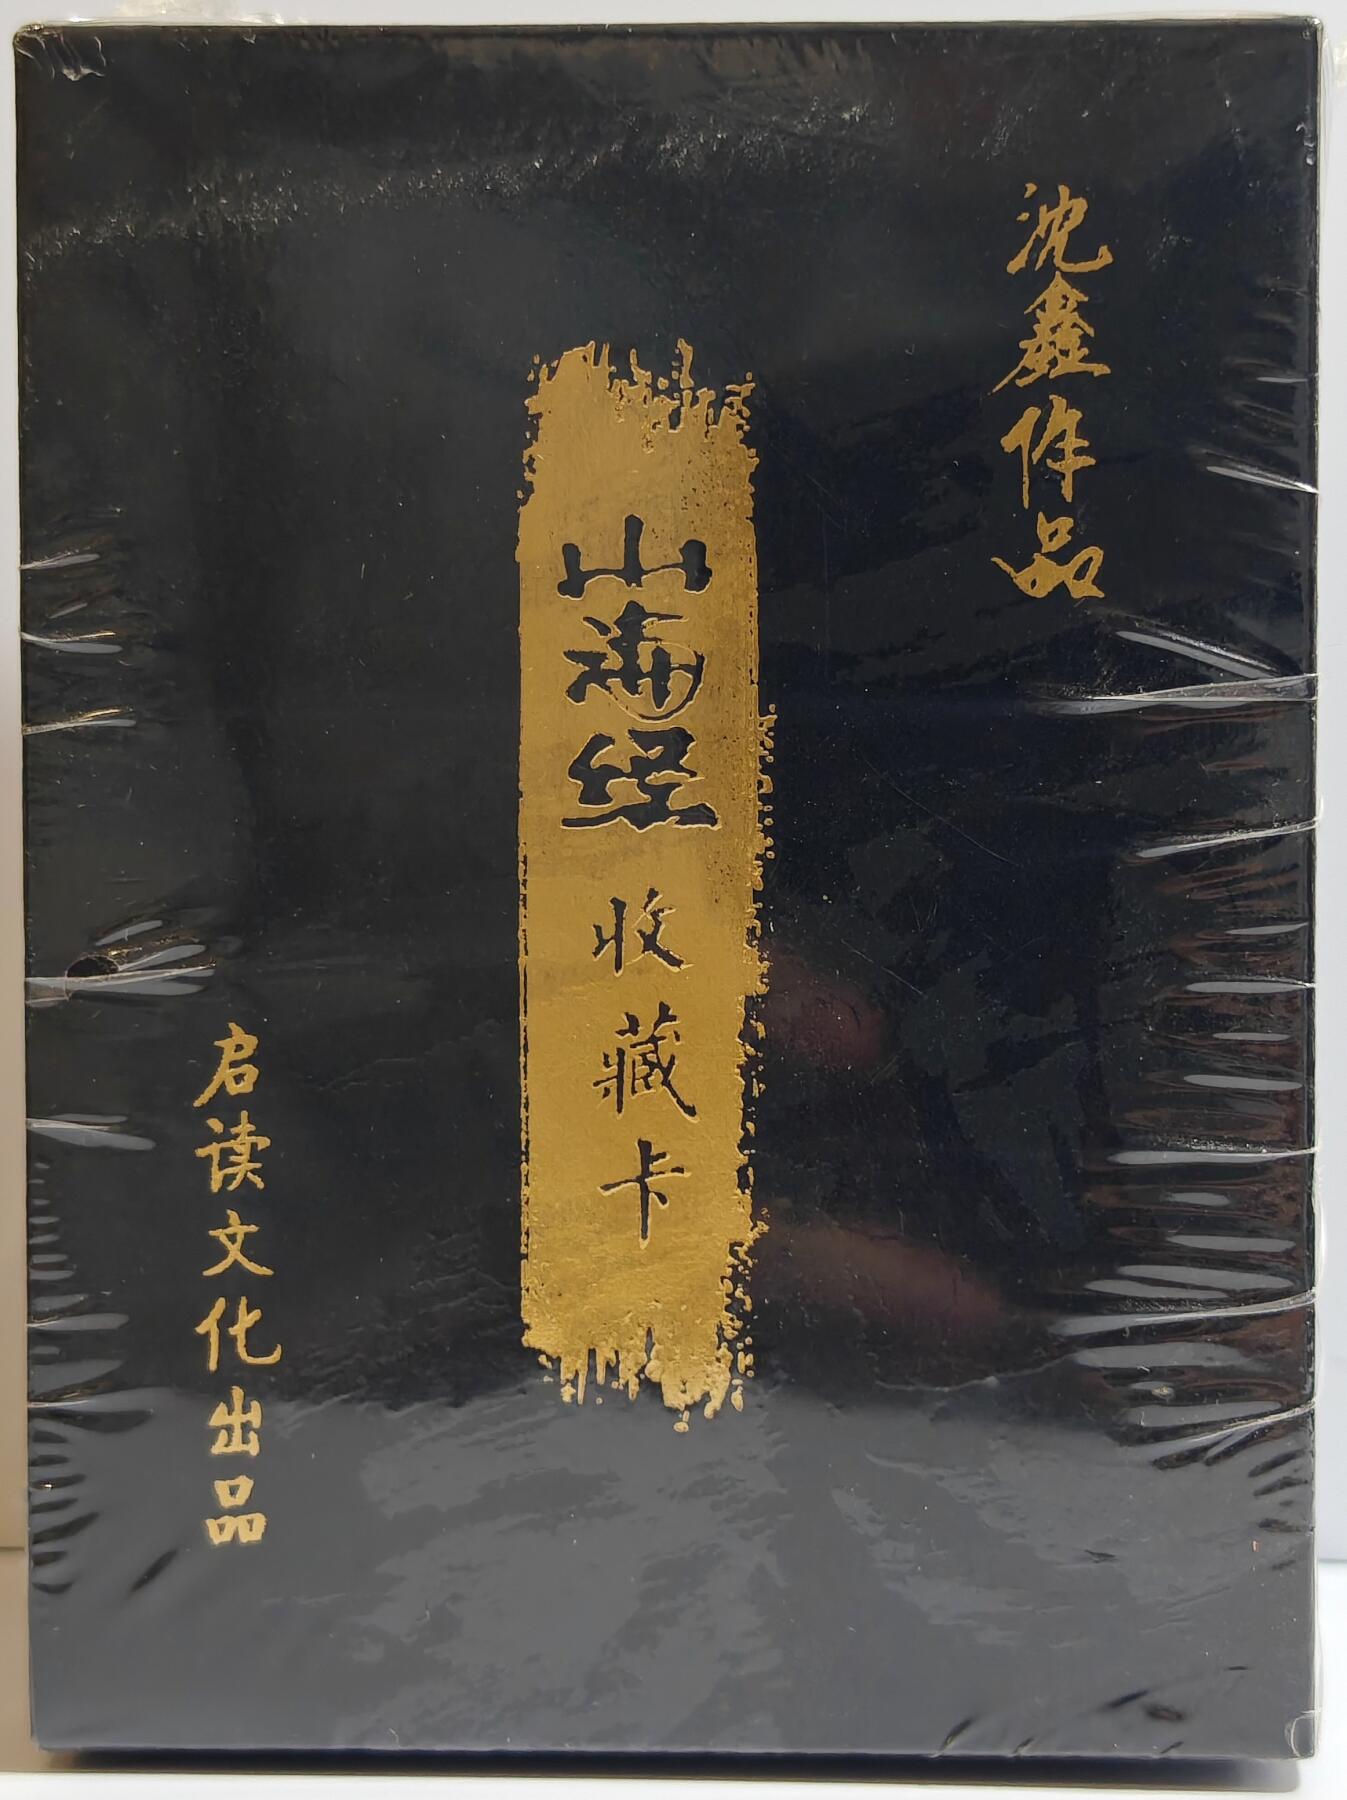 沈鑫作品
山海经收藏卡
启读文化出品